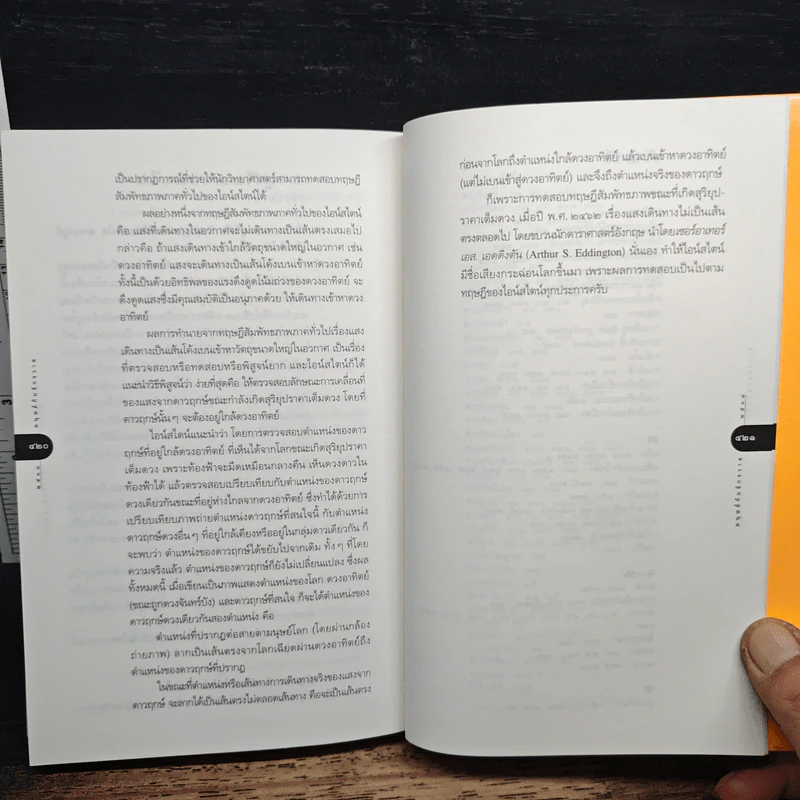 เป็นปรากฏการณ์ที่ช่วยให้นักวิทยาศาสตร์สามารถทดสอบทฤษฎี
สัมพัทธภาพภาคทั่วไปของไอน์สไตน์ได้
ผลอย่างหนึ่งจากทฤษฎีสัมพัทธภาพภาคทั่วไปของไอน์สไตน์
คือ แสงที่เดินทางในอวกาศจะไม่เดินทางเป็นเส้นตรงเสมอไป
กล่าวคือ ถ้าแสงเดินทางเข้าใกล้วัตถุขนาดใหญ่ในอวกาศ เช่น
ดวงอาทิตย์ แสงจะเดินทางเป็นเส้นโค้งเบนเข้าหาดวงอาทิตย์
ทั้งนี้เป็นด้วยอิทธิพลของแรงดึงดูดโน้มถ่วงของดวงอาทิตย์ จะ
ดึงดูดแสงซึ่งมีคุณสมบัติเป็นอนุภาคด้วย ให้เดินทางเข้าหาดวง
อาทิตย์
ผลการทำนายจากทฤษฎีสัมพัทธภาพภาคทั่วไปเรื่องแสง
เดินทางเป็นเส้นโค้งเบนเข้าหาวัตถุขนาดใหญ่ในอวกาศ เป็นเรื่อง
ที่ตรวจสอบหรือทดสอบหรือพิสูจน์ยาก และไอน์สไตน์ก็ได้
แนะนำวิธีพิสูจน์ว่า ง่ายที่สุดคือ ให้ตรวจสอบลักษณะการเคลื่อนที่
ของแสงจากดาวฤกษ์ขณะกำลังเกิดสุริยุปราคาเต็มดวง โดยที่
ดาวฤกษ์นั้นๆ จะต้องอยู่ใกล้ดวงอาทิตย์
ไอน์สไตน์แนะนำว่า โดยการตรวจสอบตำแหน่งของดาว
ฤกษ์ที่อยู่ใกล้ดวงอาทิตย์ ที่เห็นได้จากโลกขณะเกิดสุริยุปราคา
เต็มดวง เพราะท้องฟ้าจะมืดเหมือนกลางคืน เห็นดวงดาวใน
ท้องฟ้าได้ แล้วตรวจสอบเปรียบเทียบกับตำแหน่งของดาวฤกษ์
ดวงเดียวกันขณะที่อยู่ห่างไกลจากดวงอาทิตย์ ซึ่งทำได้ด้วยการ
เปรียบเทียบภาพถ่ายตำแหน่งดาวฤกษ์ที่สนใจนี้ กับตำแหน่ง
ดาวฤกษ์ดวงอื่นๆ ที่อยู่ใกล้เคียงหรืออยู่ในกลุ่มดาวเดียวกัน ก็
จะพบว่า ตำแหน่งของดาวฤกษ์ได้ขยับไปจากเดิม ทั้งๆ ที่โดย
ความจริงแล้ว ตำแหน่งของดาวฤกษ์ก็ยังไม่เปลี่ยนแปลง ซึ่งผล
ทั้งหมดนี้ เมื่อเขียนเป็นภาพแสดงตำแหน่งของโลก ดวงอาทิตย์
(ขณะถูกดวงจันทร์บัง) และดาวฤกษ์ที่สนใจ ก็จะได้ตำแหน่งของ
ดาวฤกษ์ดวงเดียวกันสองตำแหน่ง คือ
ตำแหน่งที่ปรากฏต่อสายตามนุษย์โลก (โดยผ่านกล้อง
ถ่ายภาพ) ลากเป็นเส้นตรงจากโลกเฉียดผ่านดวงอาทิตย์ถึง
ตำแหน่งของดาวฤกษ์ที่ปรากฏ
ในขณะที่ตำแหน่งหรือเส้นทางการเดินทางจริงของแสงจาก
ดาวฤกษ์ จะลากได้เป็นเส้นตรงไม่ตลอดเส้นทาง คือจะเป็นเส้นตรง
๔๒๐
ก่อนจากโลกถึงตำแหน่งใกล้ดวงอาทิตย์ แล้วเบนเข้าหาดวงอาทิตย์
(แต่ไม่เบนเข้าสู่ดวงอาทิตย์) และจึงถึงตำแหน่งจริงของดาวฤกษ์
ก็เพราะการทดสอบทฤษฎีสัมพัทธภาพขณะที่เกิดสุริยุป-
ราคาเต็มดวง เมื่อปี พ.ศ. ๒๔๖๒ เรื่องแสงเดินทางไม่เป็นเส้น
ตรงตลอดไป โดยขบวนนักดาราศาสตร์อังกฤษ นำโดยเซอร์อาเทอร์
เอส. เอดดิงตัน (Arthur S. Eddington) นั่นเอง ทำให้ไอน์สไตน์
มีชื่อเสียงกระฉ่อนโลกขึ้นมา เพราะผลการทดสอบเป็นไปตาม
ทฤษฎีของไอน์สไตน์ทุกประการครับ
๔๒๑